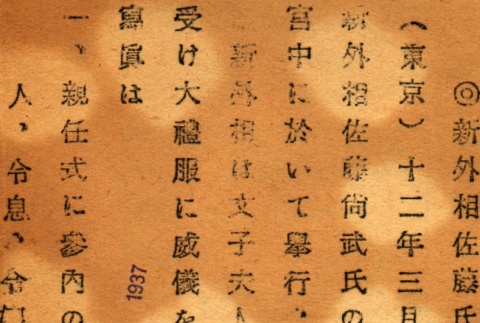 ◎新外相佐藤氏
(東京)十二年三月
新外相佐藤尙武氏の
宮中に於いて擧行、
新外相は文子夫人
受け大禮服に威儀を
寫眞は
一、親任式に參內の
人、令息、令
1937